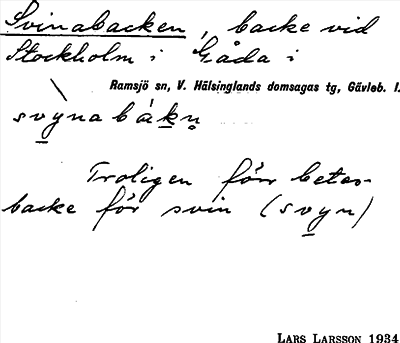 Svinabacken, backe vid
Stockholm i Gåda i
Ramsjö sn, V. Hälsinglands domsagas tg, Gävleb. l.
svynabákn̥
Troligen förr betes-
backe för svin (svyn)
LARS LARSSON 1934